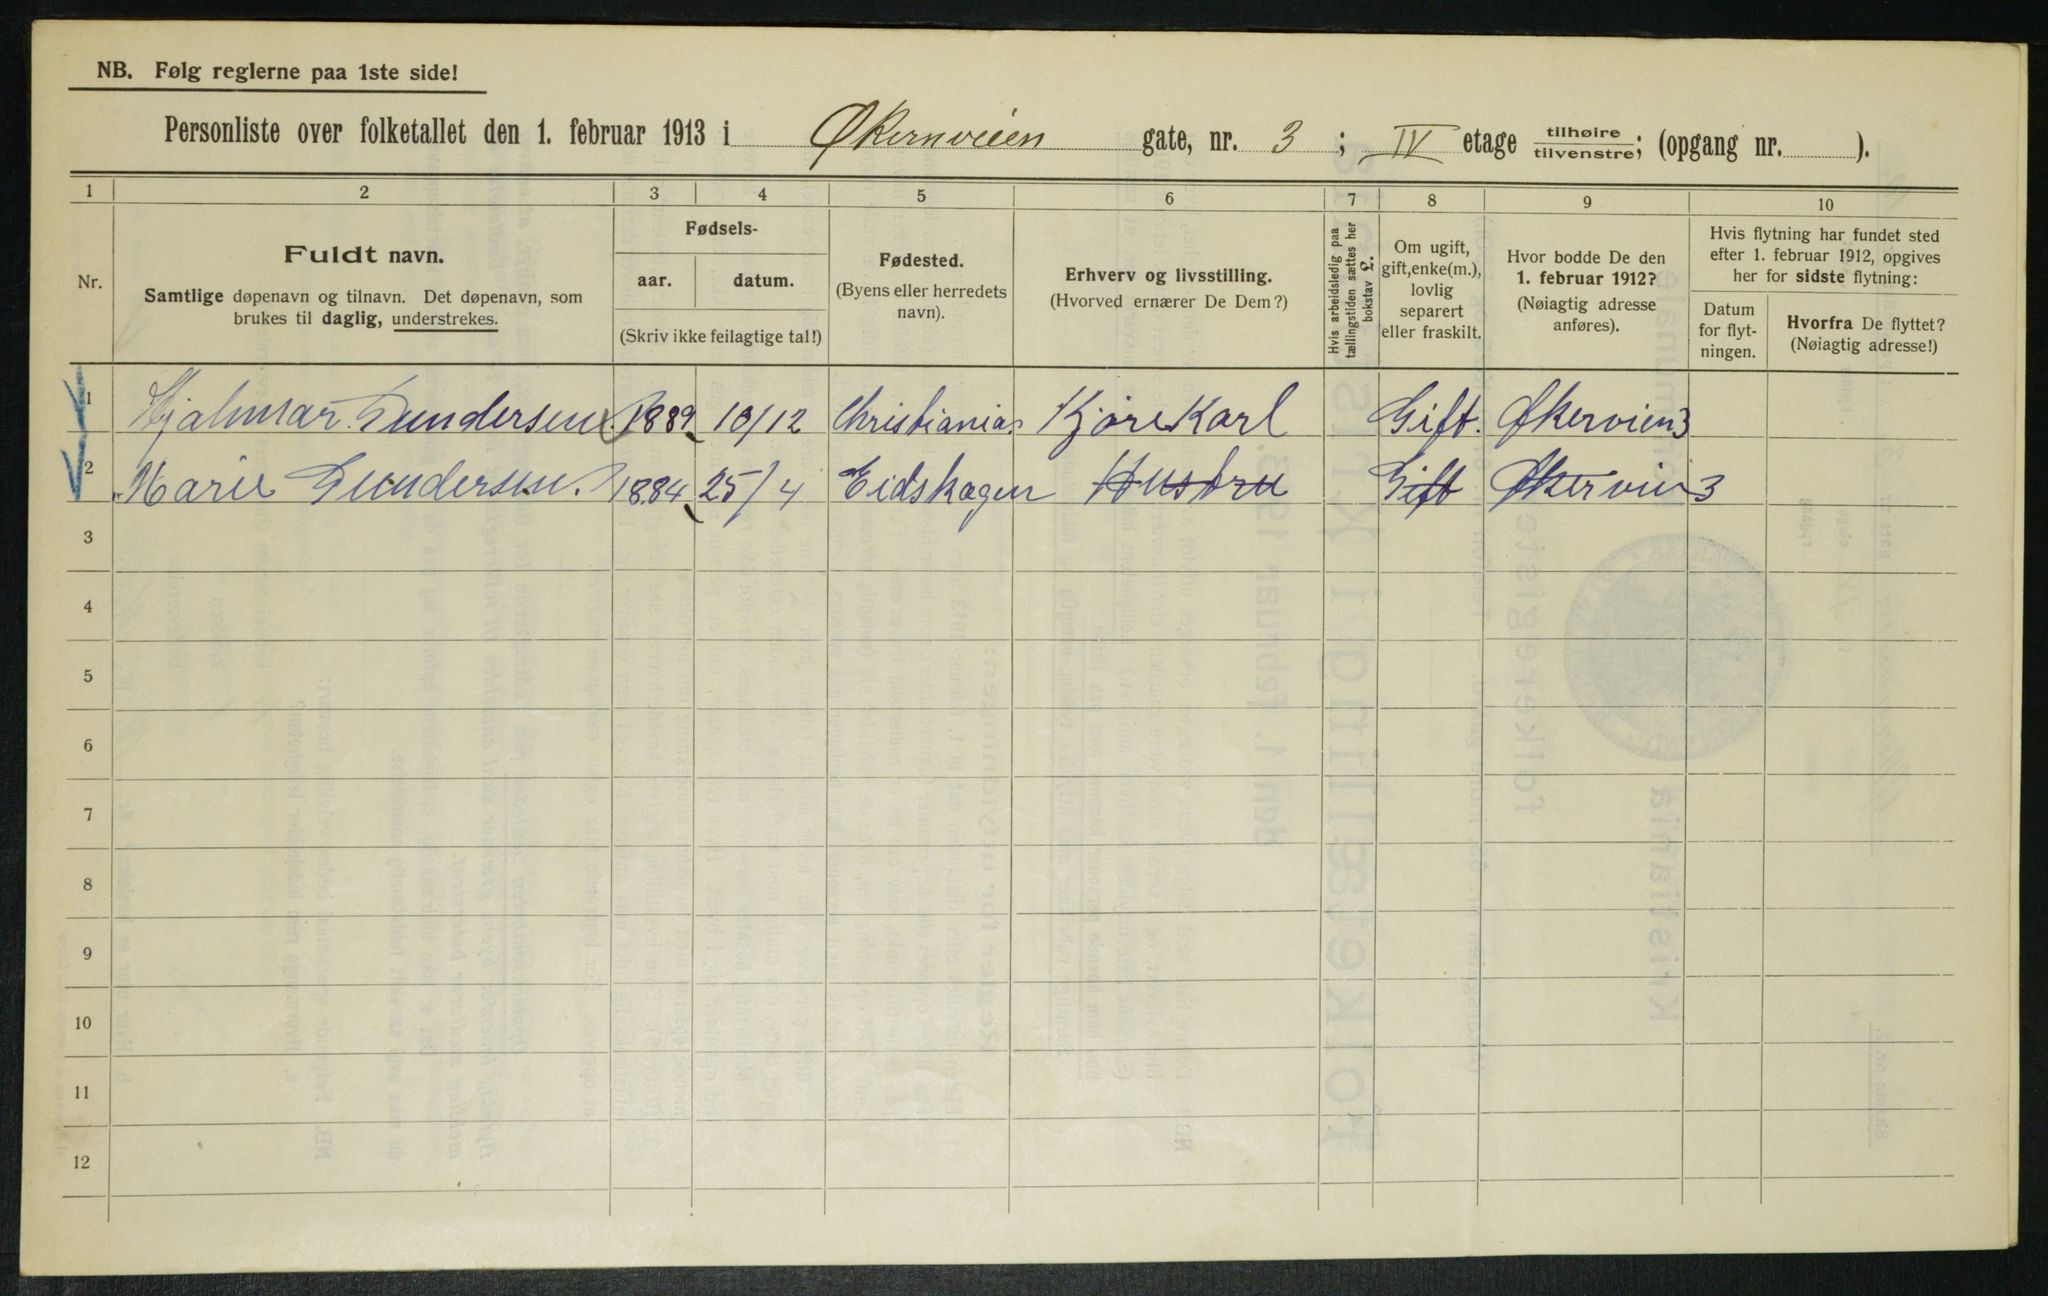 NB. Følg reglerne paa 1ste side!
Personliste over folketallet den 1. februar 1913 i Økernveien gate, nr. 3; IV etage tilhøire tilvenstre; (opgang nr. ).
1 2 3 4 5 6 7 8 9 10
Nr.
Fuldt navn.
Samtlige døpenavn og tilnavn. Det døpenavn, som
brukes til daglig, understrekes.
Fødsels-
aar. datum.
(Skriv ikke feilagtige tal!)
Fødested.
(Byens eller herredets
navn).
Erhverv og livsstilling.
(Hvorved ernærer De Dem?)
Hvis arbeidsledig paa
tællingstiden sættes her
bokstav £.
Om ugift,
gift, enke(m.),
lovlig
separert
eller fraskilt.
Hvor bodde De den
1. februar 1912?
(Nøiagtig adresse
anføres).
Hvis flytning har fundet sted
efter 1. februar 1912, opgives
her for sidste flytning:
Datum
for flyt-
ningen.
Hvorfra De flyttet?
(Nøiagtig adresse!)
1 Hjalmar Gundersen. 1889 13/12 Christiania. Kjøre Karl Gift. Økervien 3
2 Marie Gundersen. 1884 25/4 Eidskogen Husbru Gift Økervien 3
3
4
5
6
7
8
9
10
11
12